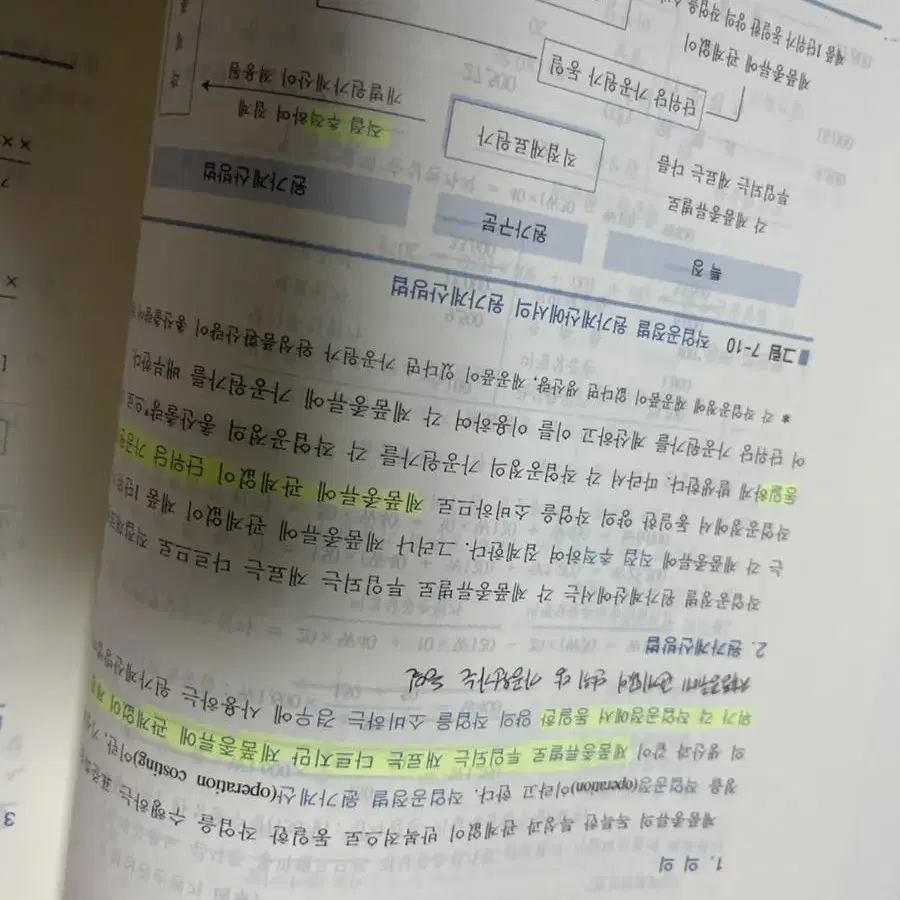 1. 의 의
제품종류의 독특한 특성과 관계없이 반복적으로 동일한 작업을 수행하는
정을 작업공정(operation)이라고 한다. 작업공정별 원가계산(operation costing)이란,
의 생산과 같이 제품종류별로 투입되는 재료는 다르지만 제품종류에 관계없이 제품
위가 각 작업공정에서 동일한 양의 작업을 소비하는 경우에 사용하는 원가계산방법
단위당 가공원가는 동일
2. 원가계산방법
작업공정별 원가계산에서는 각 제품종류별로 투입되는 재료는 다르므로 직접재료원
는 각 제품종류에 직접 추적하여 집계한다. 그러나 제품종류에 관계없이 제품 1단위
작업공정에서 동일한 양의 작업을 소비하므로 제품종류에 관계없이 단위당 가공원
동일하게 발생한다. 따라서 각 작업공정의 가공원가를 각 작업공정의 총산출량*으로
어 단위당 가공원가를 계산하고 이를 이용하여 각 제품종류에 가공원가를 배부한다.
* 각 작업공정에 재공품이 없다면 생산량, 재공품이 있다면 가공원가 완성품환산량이 총산출량이
그림 7-10 작업공정별 원가계산에서의 원가계산방법
특 징 원가구분 원가계산방법
각 제품종류별로
투입되는 재료는 다름
직접재료원가
직접 추적하여 집계
개별원가계산이 적용됨
단위당 가공원가 동일
제품종류에 관계없이
제품 1단위가 동일한 양의 작업을